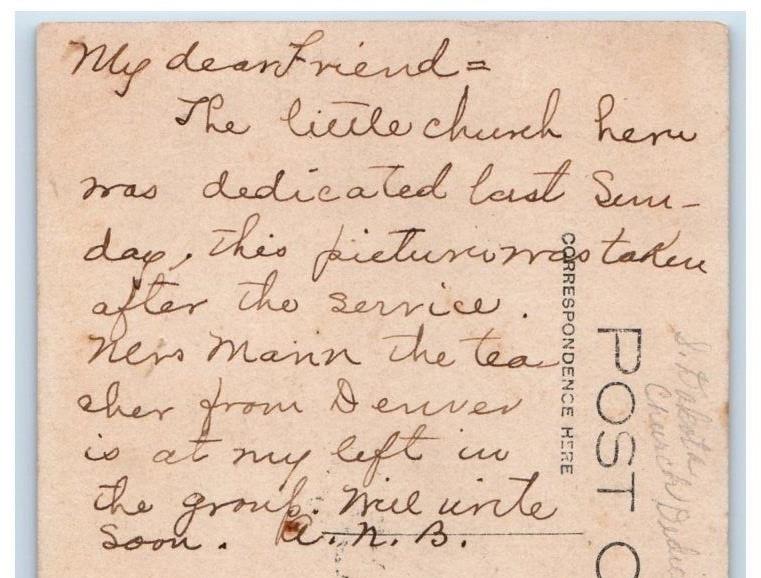 My dear Friend =
The little church here
was dedicated last Sun-
day, this picture was taken
after the service.
Mrs Mann the tea
cher from Denver
is at my left in
the group. Will write
soon. A. N. B.
CORRESPONDENCE HERE
POST C
S. Dakota
Church Dedic